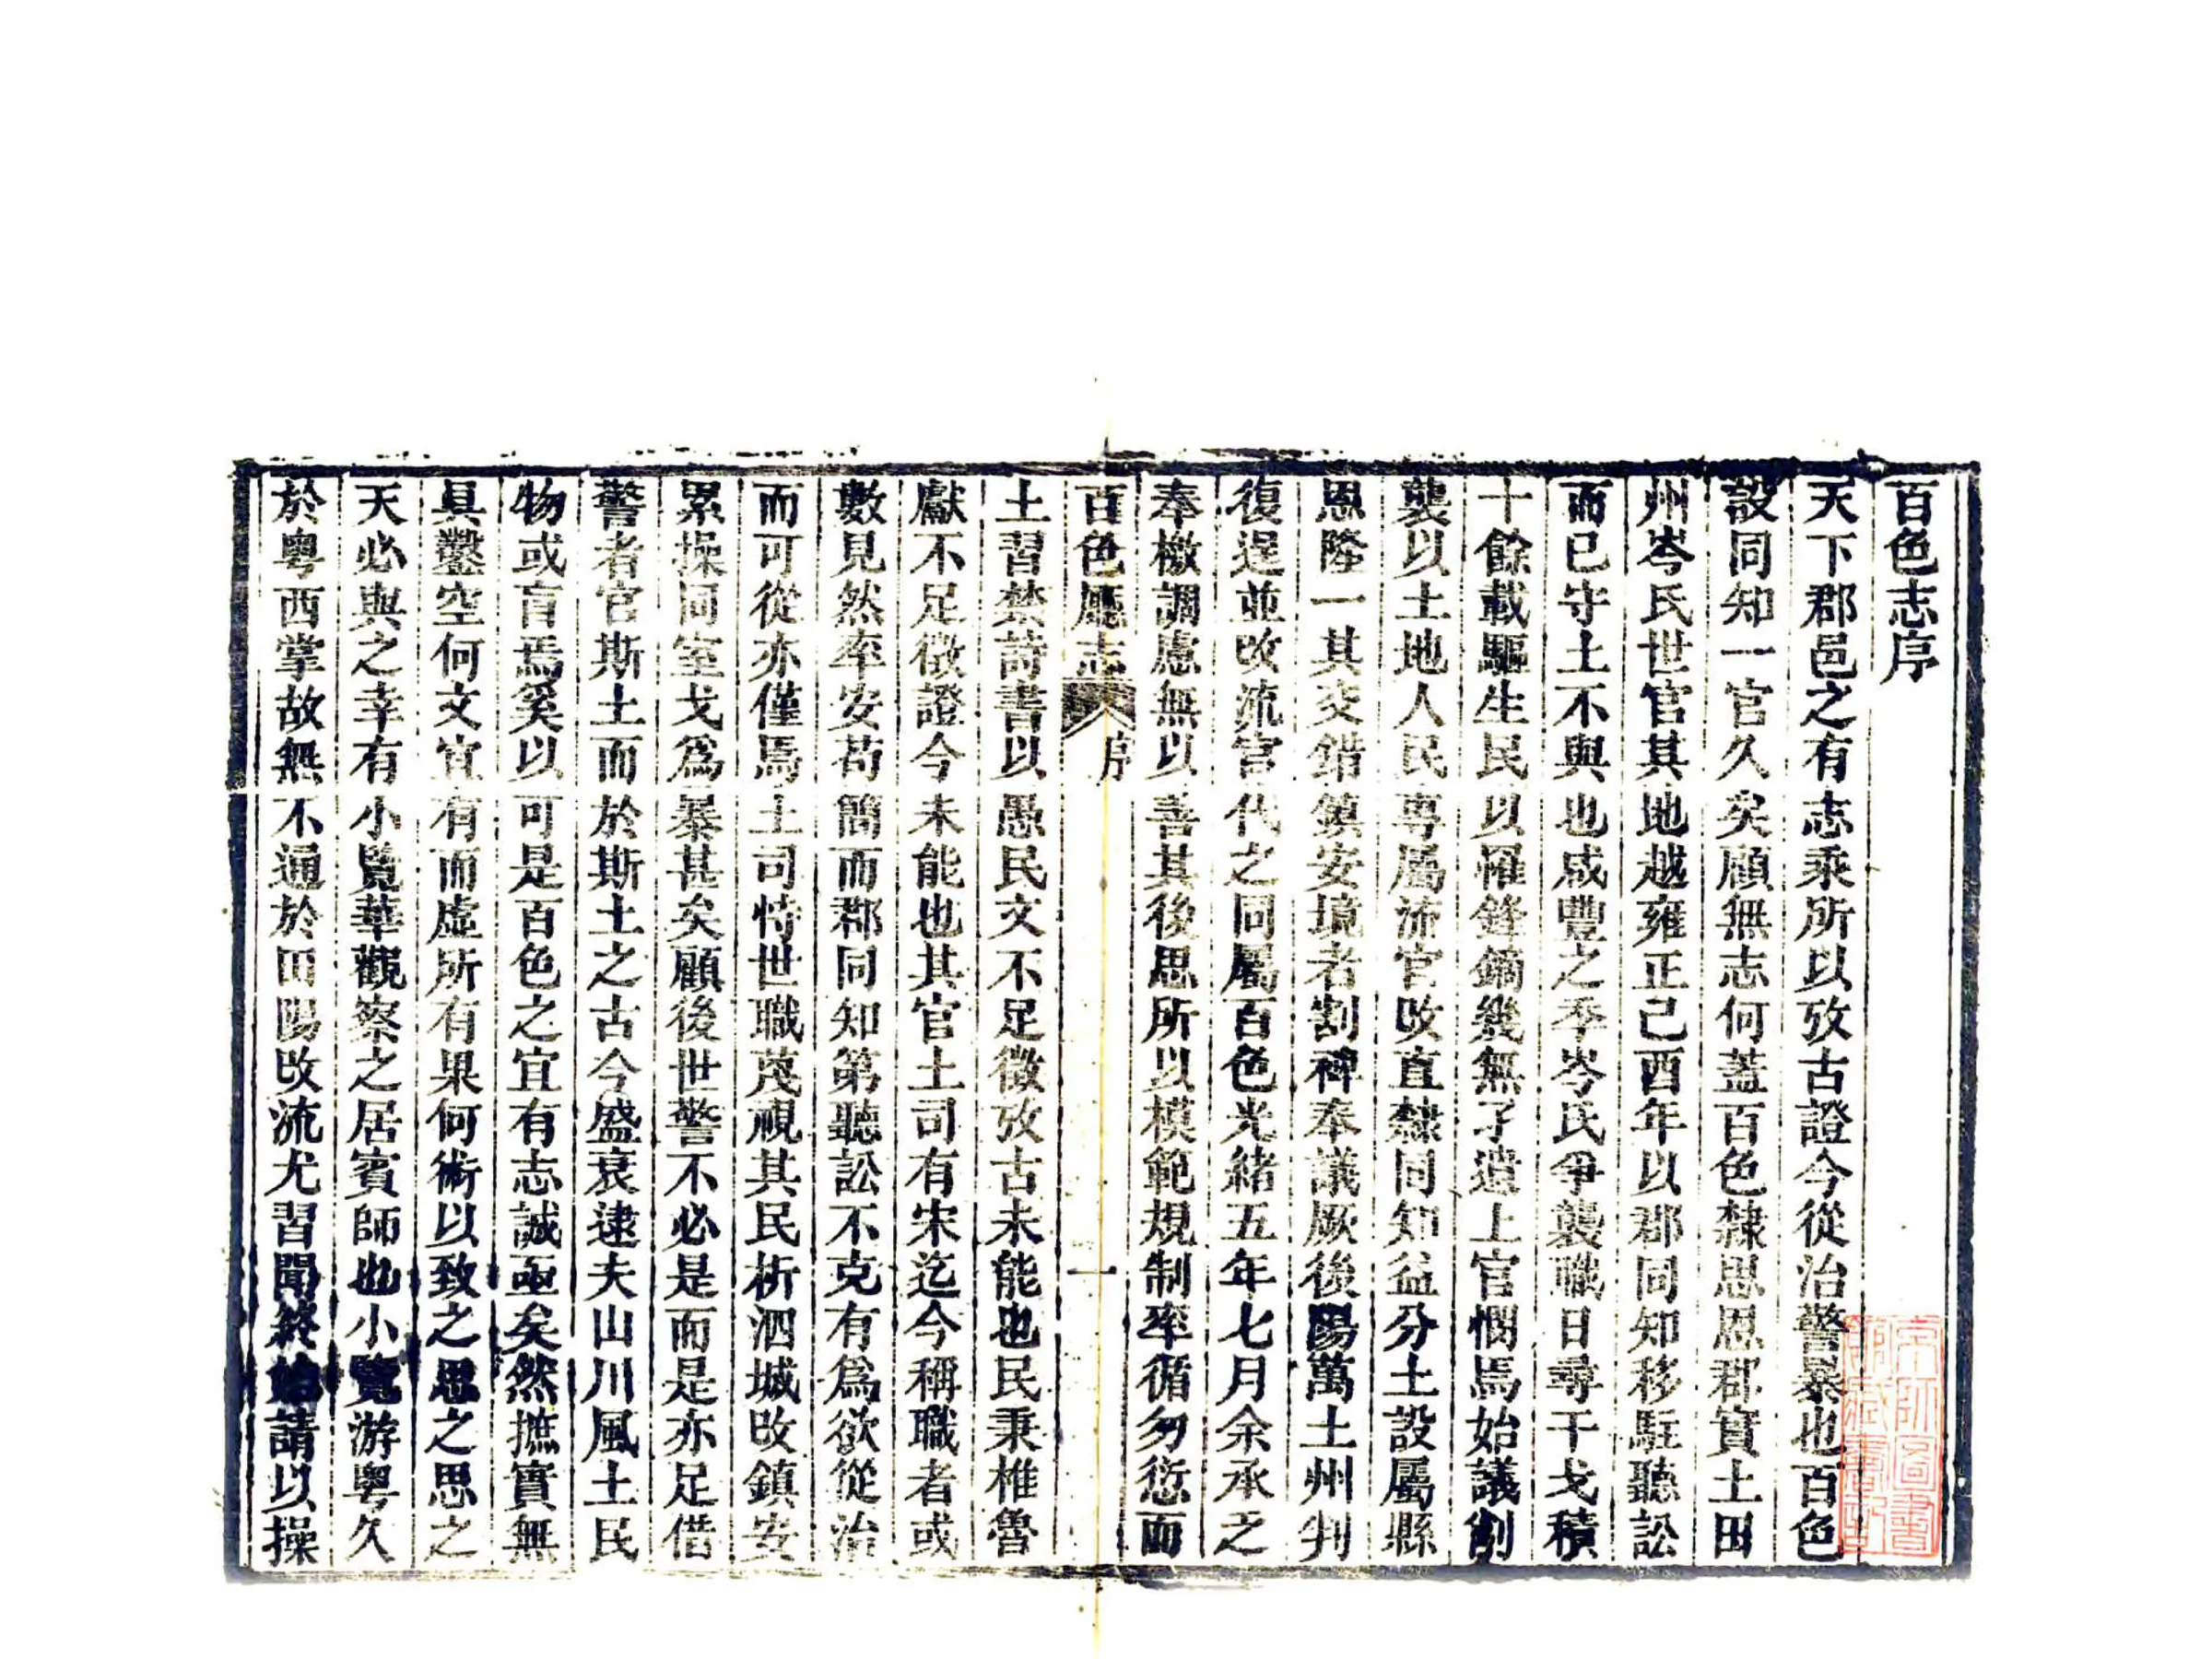 百色志序
天下郡邑之有志乘所以攷古證今從治警暴也百色
設同知一官久矣顧無志何蓋百色隸思恩郡實土田
州岑氏世官其地越雍正己酉年以郡同知移駐聽訟
而已守土不與也咸豐之季岑氏爭襲職日尋干戈積
十餘載驅生民以罹鋒鏑幾無孑遺上官憫焉始議削
襲以土地人民專屬流官攺直隸同知益分土設屬縣
恩隆一其交錯鎮安境者割裨奉議厥後陽萬土州判
復逞並攺流官代之同屬百色光緒五年七月余承乏
奉檄調處無以善其後思所以模範規制率循勿愆而
百色廳志 序 一
土習禁詩書以愚民文不足徵攷古未能也民秉椎魯
獻不足徵證今未能也其官土司有宋迄今稱職者或
數見然率安苟簡而郡同知第聽訟不克有爲欲從治
而可從亦僅焉土司恃世職蔑視其民析泗城攺鎮安
累操同室戈爲暴甚矣顧後世警不必是而是亦足借
警者官斯土而於斯土之古今盛衰逮夫山川風土民
物或盲焉奚以可是百色之宜有志誠亟矣然摭實無
具鑿空何文宜有而虛所有果何術以致之思之思之
天必與之幸有小覽華觀察之居賓師也小覽游粵久
於粵西掌故無不通於田陽攺流尤習聞終始請以操